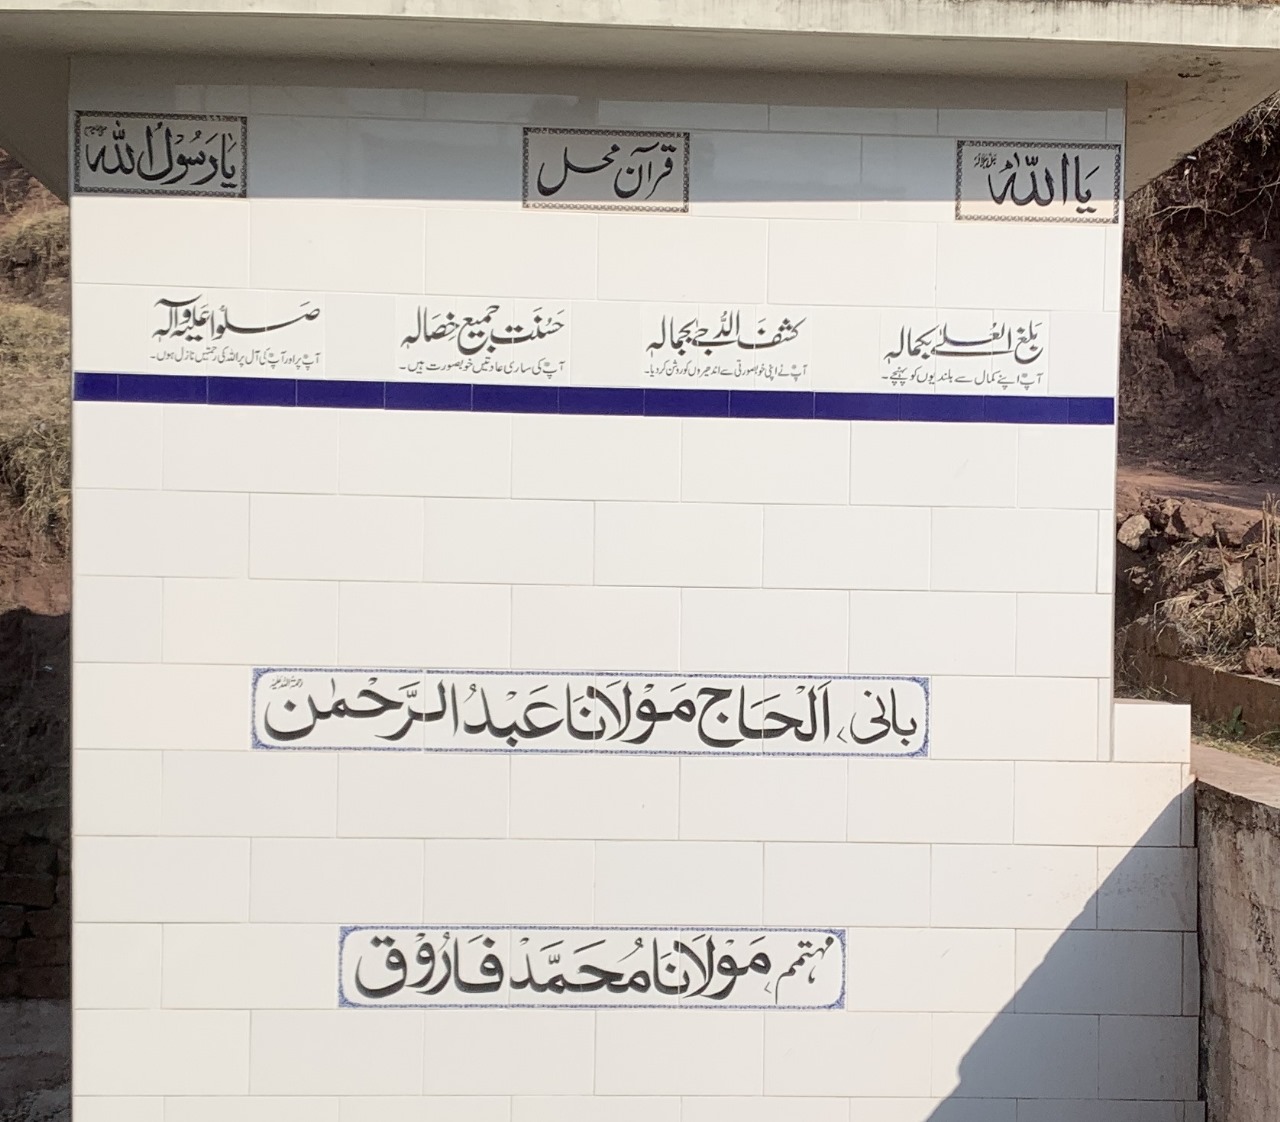 یَا اللّٰہُ جل جلالہ
قرآن محل
یَا رَسُوْلَ اللّٰہ
بَلَغَ الْعُلےٰ بِکَمَالِہٖ
آپؐ اپنے کمال سے بلندیوں کو پہنچے۔
کَشَفَ الدُّجےٰ بِجَمَالِہٖ
آپؐ نے اپنی خوبصورتی سے اندھیروں کو روشن کر دیا۔
حَسُنَت جَمِیعُ خِصَالِہٖ
آپؐ کی ساری عادتیں خوبصورت ہیں۔
صَلُّوْا عَلَیْہِ وَآلِہٖ
آپؐ پر اور آپؐ کی آل پر اللہ کی رحمتیں نازل ہوں۔
بانی، اَلْحَاج مَوْلَانَا عَبْدُ الرَّحْمٰن رحمۃ اللہ علیہ
مہتمم، مَوْلَانَا مُحَمَّدْ فَارُوْق